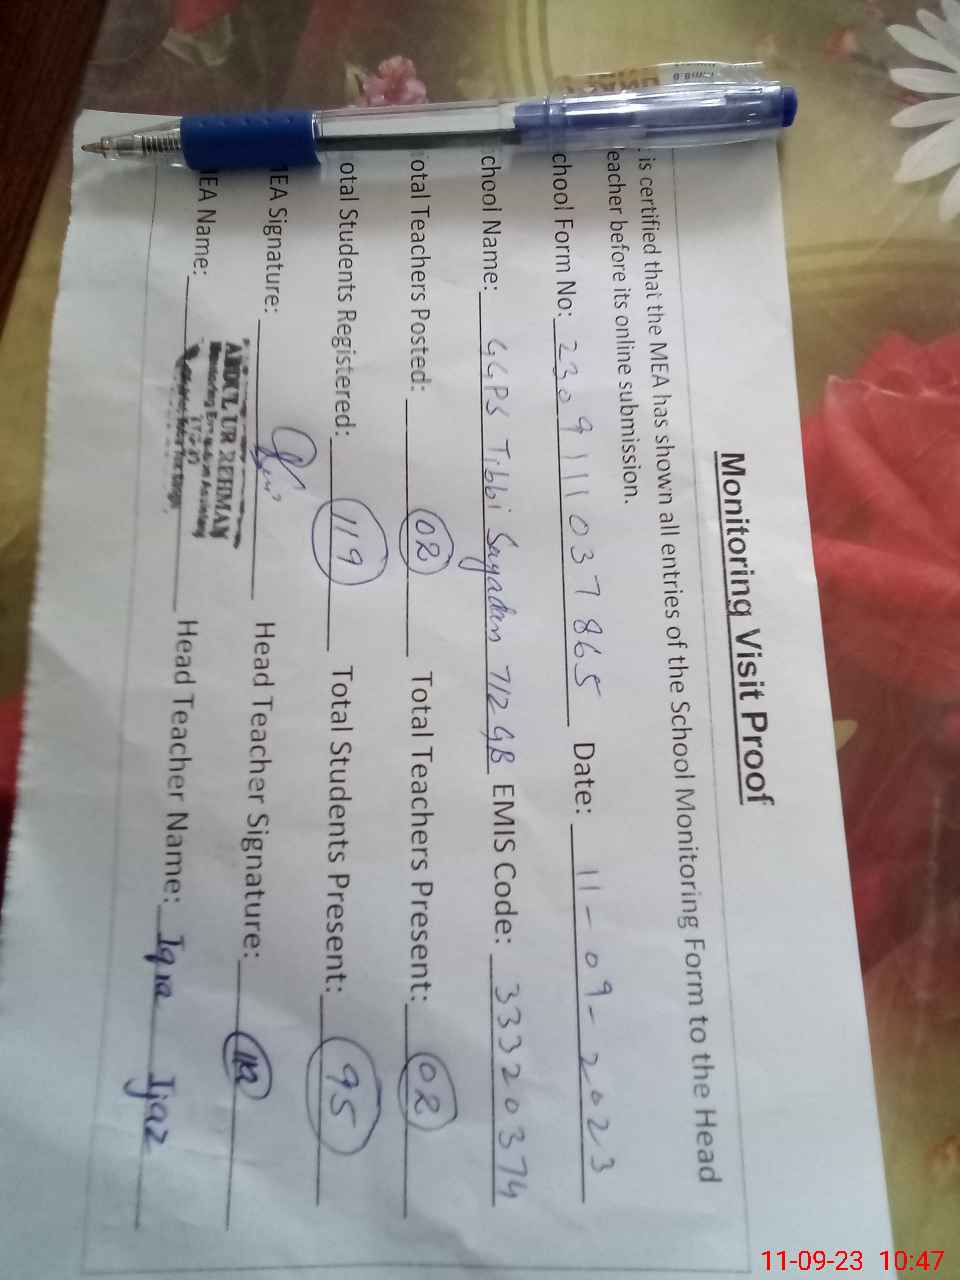 Monitoring Visit Proof
is certified that the MEA has shown all entries of the School Monitoring Form to the Head
eacher before its online submission.
chool Form No: 230911037865 Date: 11-09-2023
chool Name: GGPS Tibbi Sayaden 712 GB EMIS Code: 33320374
otal Teachers Posted: 02 Total Teachers Present: 02
otal Students Registered: 119 Total Students Present: 95
MEA Signature: Head Teacher Signature:
ABDUL UR REHMAN
Monitoring Evaluation Assistant
MEA Name: Head Teacher Name: Iqra Ijaz
11-09-23 10:47